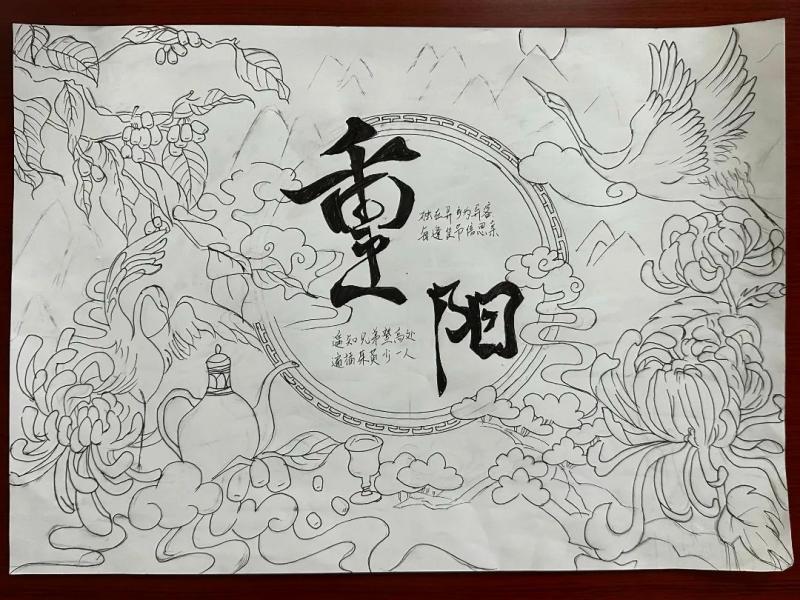 重
阳
独在异乡为异客
每逢佳节倍思亲
遥知兄弟登高处
遍插茱萸少一人